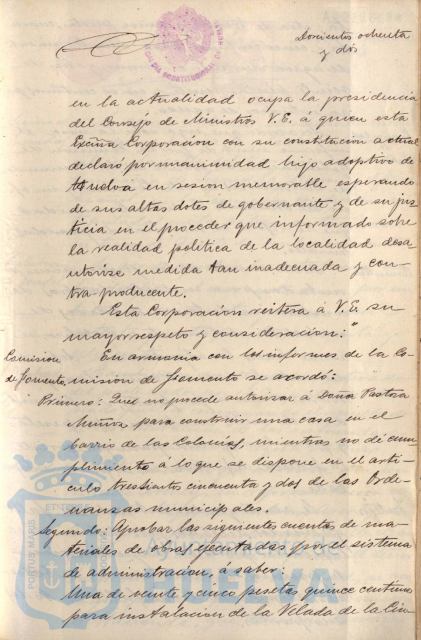 Doscientos ochenta
y dós
en la actualidad ocupa la presidencia
del Consejo de Ministros V.E. á quien esta
Excma Corporación con su constitución actual
declaró por unanimidad hijo adoptivo de
Huelva en sesion memorable esperando
de sus altas dotes de gobernante y de su jus
ticia en el proceder que informado sobre
la realidad politica de la localidad desa
utorise medida tan inadecuada y con-
tra-producente.
Esta Corporación reitera á V.E. su
mayor respeto y consideración:"
Comisión
de Fomento.
En armonia con los informes de la Co-
misión de Fomento se acordó:
Primero: Que no procede autorizar á Doña Pastora
Muñiz para construir una casa en el
barrio de las Colonias, mientras no dé cum
plimiento á lo que se dispone en el arti-
culo trescientos cincuenta y dos de las Orde-
nanzas municipales.
Segundo: Aprobar las siguientes cuentas de ma-
teriales de obras ejecutadas por el sistema
de administración, á saber:
Una de veinte y cinco pesetas quince centimos
para instalación de la Velada de la Cin-
PORTUS MARIS
HUELVA